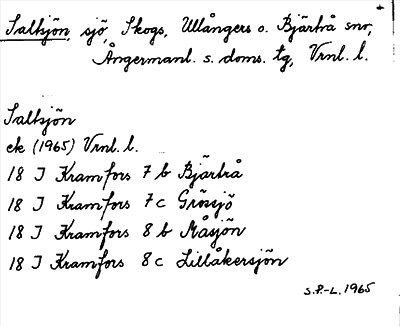 Saltsjön, sjö, Skogs, Ullångers o. Bjärtrå snr,
Ångermanl. s. doms. tg, Vrnl. l.
Saltsjön
ek (1965) Vrnl. l.
18 J Kramfors 7 b Bjärtrå
18 J Kramfors 7 c Grössjö
18 J Kramfors 8 b Måsjön
18 J Kramfors 8 c Lillåkersjön
S.P.-L. 1965